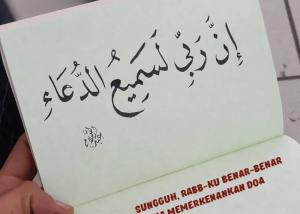 إِنَّ رَبِّي لَسَمِيعُ الدُّعَاءِ
SUNGGUH, RABB-KU BENAR-BENAR
MEMERKENANKAN DOA